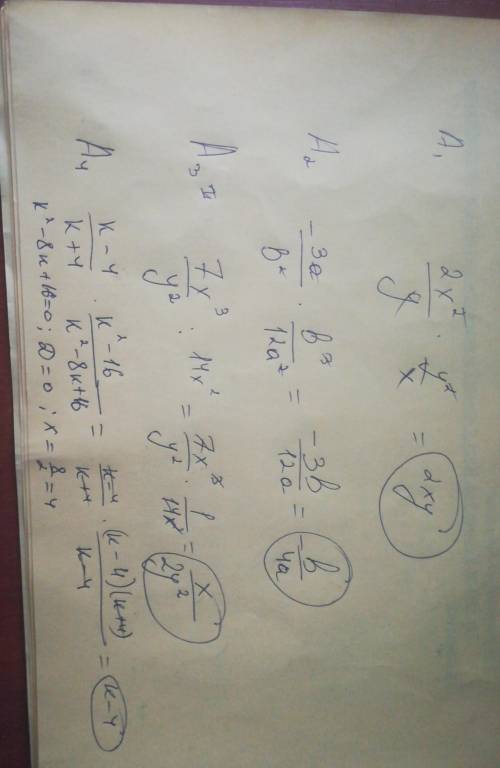 A₁ 2x²/y · y²/x = 2xy
A₂ -3a/b² · b³/12a² = -3b/12a = -b/4a
A₃ 7x³/y² : 14x² = 7x³/y² · 1/14x² = x/2y²
A₄ k-4/k+4 · k²-16/k²-8k+16 = k-4/k+4 · (k-4)(k+4)/k-4 = k-4
k²-8k+16=0; D=0; x=8/2=4